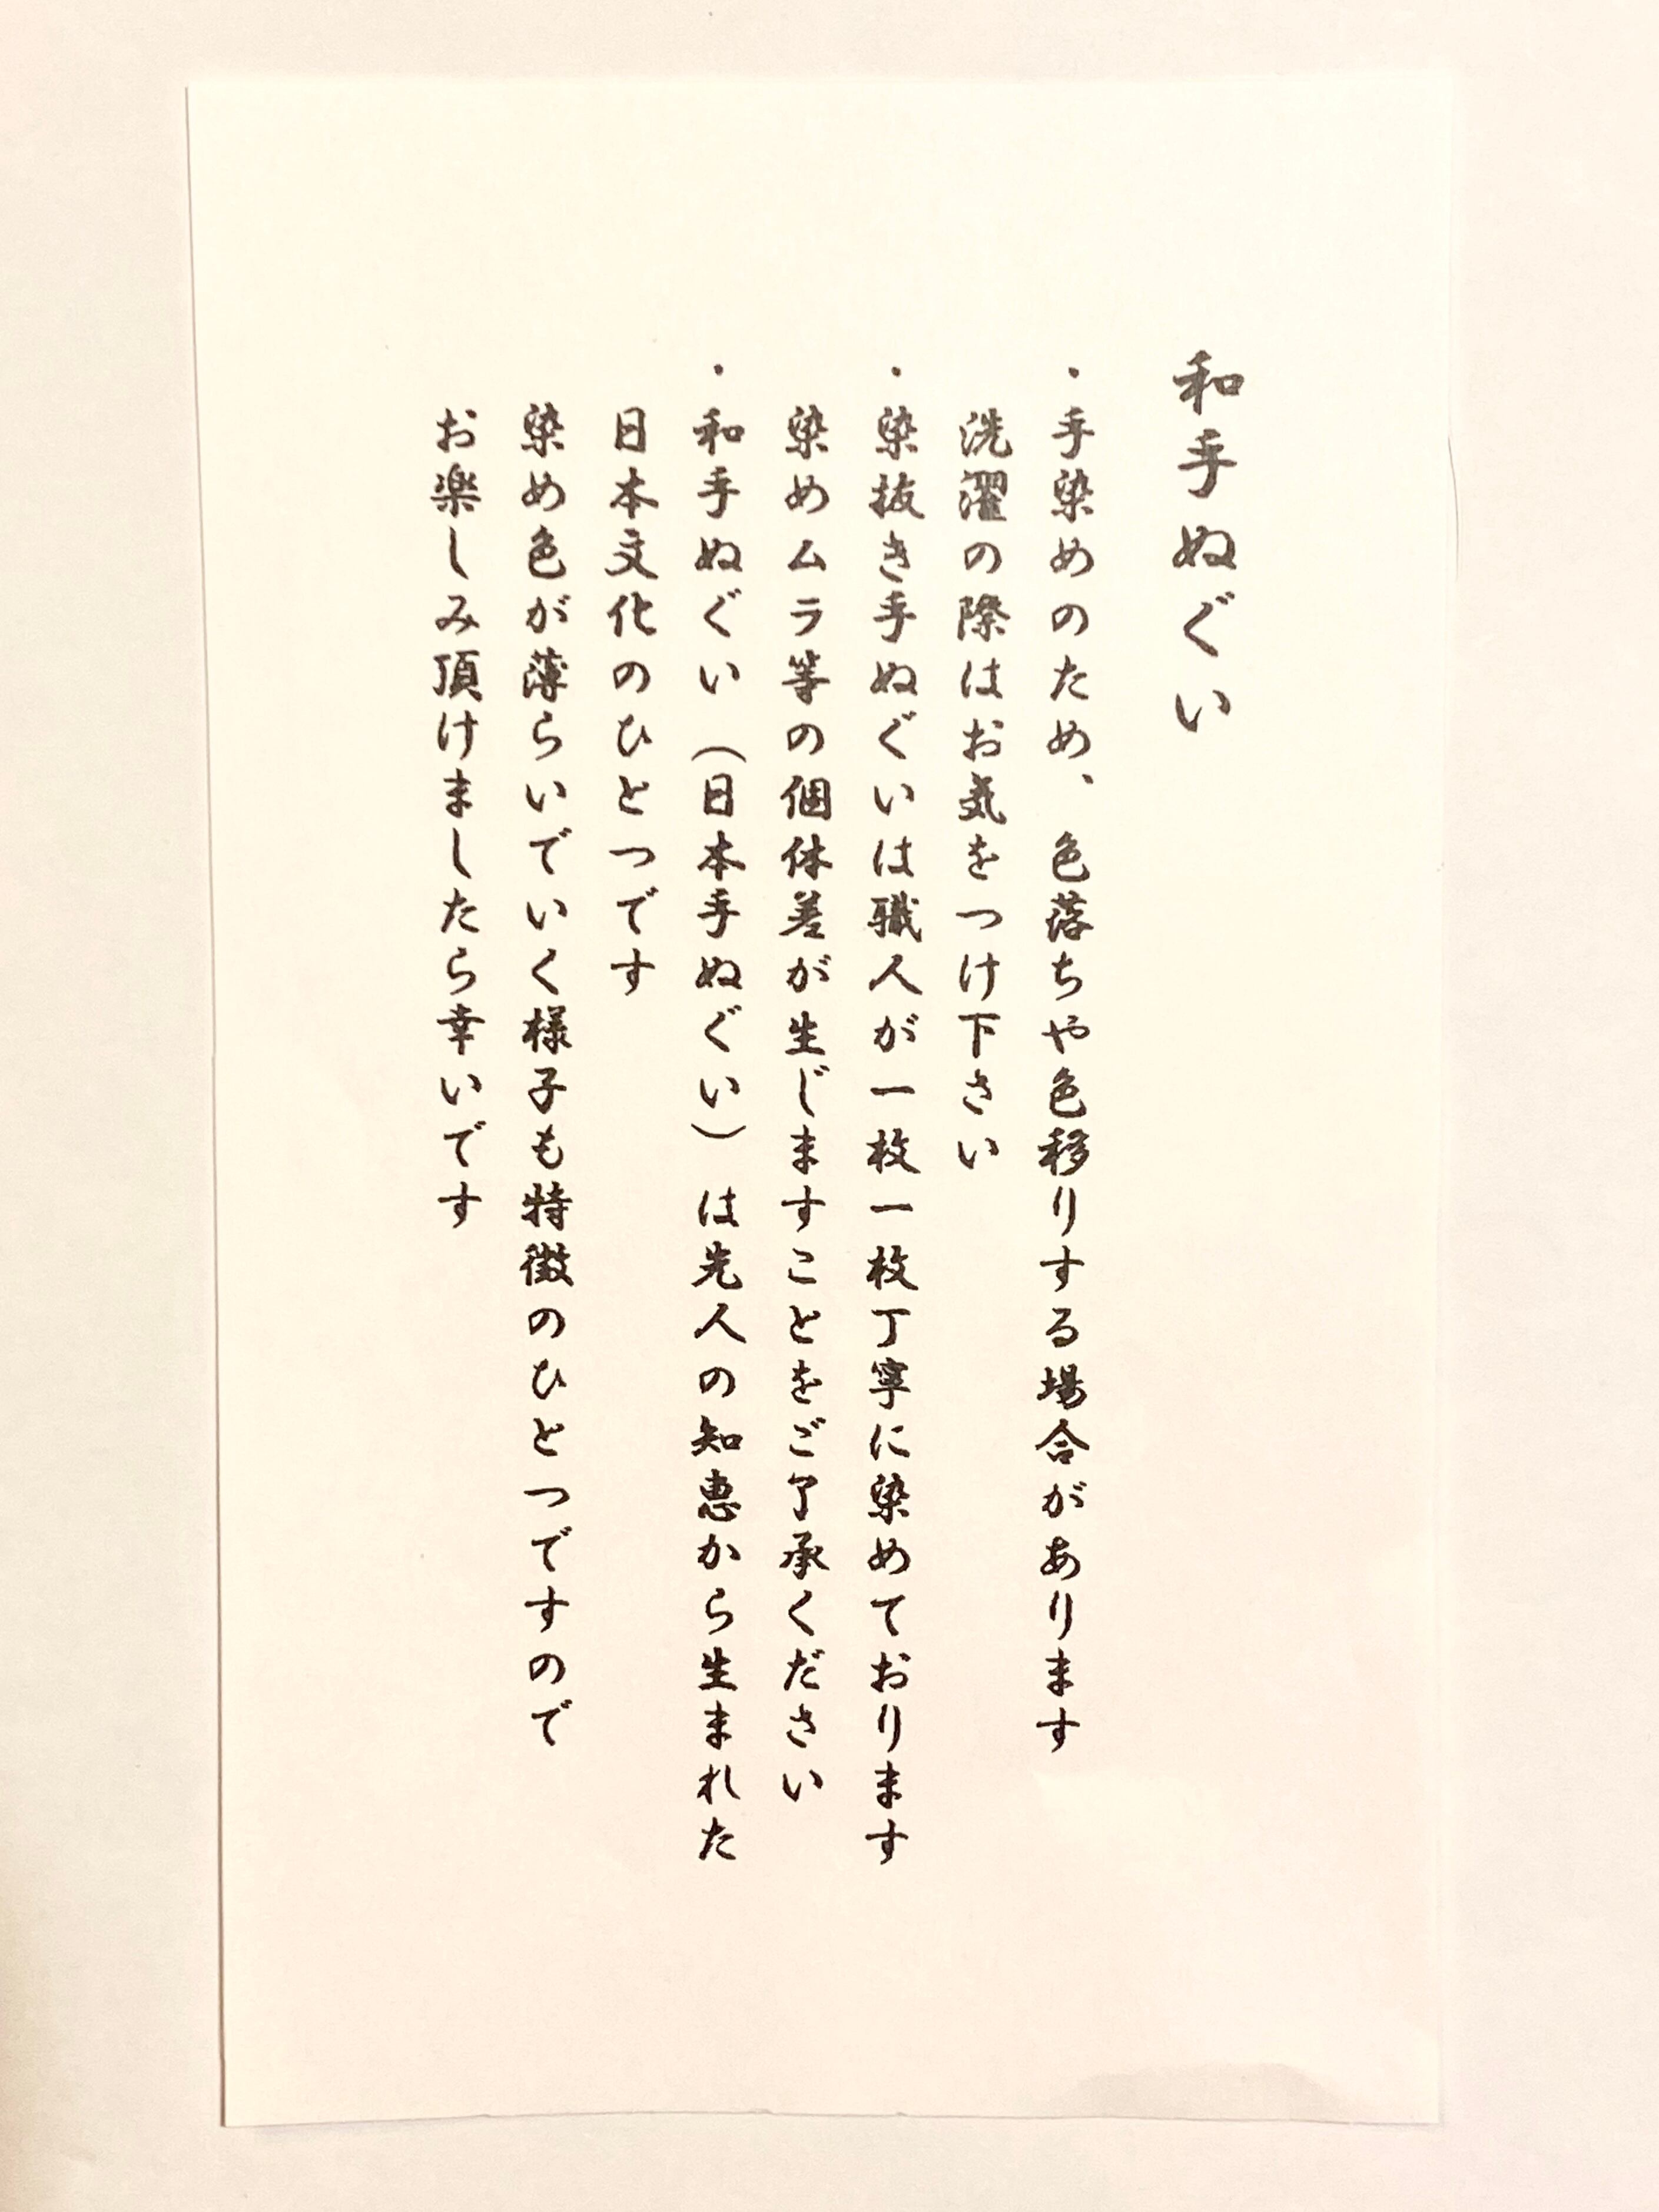 和手ぬぐい
・手染めのため、色落ちや色移りする場合があります
洗濯の際はお気をつけ下さい
・染抜き手ぬぐいは職人が一枚一枚丁寧に染めております
染めムラ等の個体差が生じますことをご了承ください
・和手ぬぐい（日本手ぬぐい）は先人の知恵から生まれた
日本文化のひとつです
染め色が薄らいでいく様子も特徴のひとつですので
お楽しみ頂けましたら幸いです